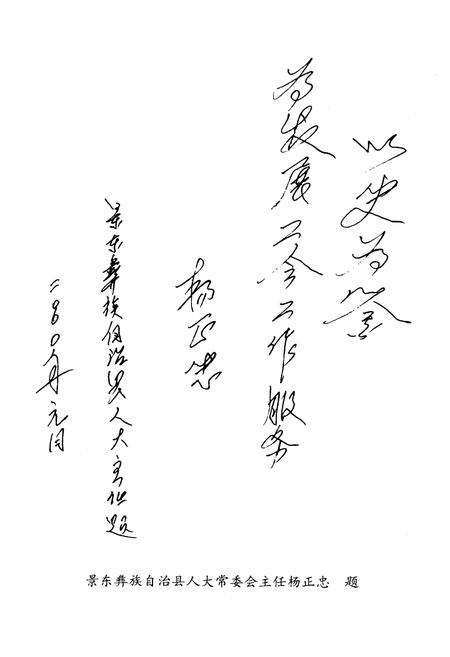 以史为鉴
为发展工会工作服务
杨正忠
景东彝族自治县人大主任题
二〇〇〇年元月
景东彝族自治县人大常委会主任杨正忠 题